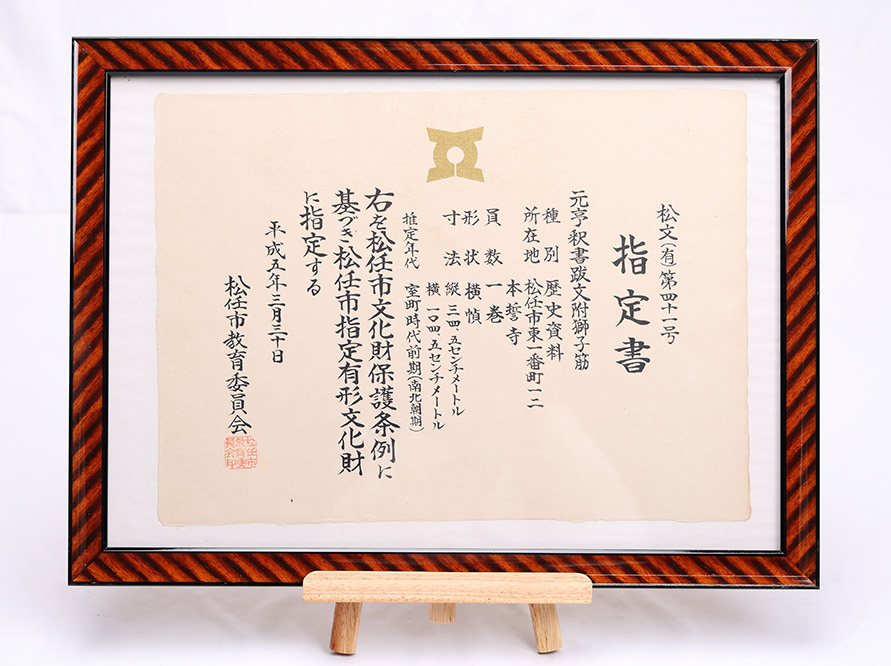 松文(有)第四十一号
指定書
元亨釈書跋文附獅子筋
種別 歴史資料
所在地 松任市東一番町一二
本誓寺
員数 一巻
形状 横幀
寸法 縦 三四、五センチメートル
横 一〇四、五センチメートル
推定年代 室町時代前期(南北朝期)
右を松任市文化財保護条例に
基づき松任市指定有形文化財
に指定する
平成五年三月三十日
松任市教育委員会
松任市
教育委
員会印